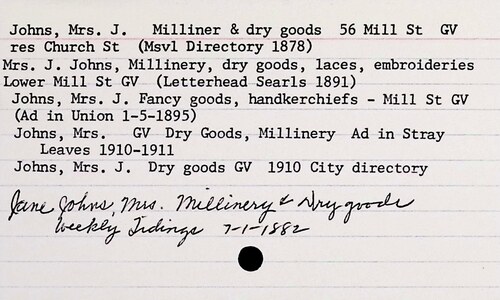 Johns, Mrs. J. Milliner & dry goods 56 Mill St GV
res Church St (Msvl Directory 1878)
Mrs. J. Johns, Millinery, dry goods, laces, embroideries
Lower Mill St GV (Letterhead Searls 1891)
Johns, Mrs. J. Fancy goods, handkerchiefs - Mill St GV
(Ad in Union 1-5-1895)
Johns, Mrs. GV Dry Goods, Millinery Ad in Stray
Leaves 1910-1911
Johns, Mrs. J. Dry goods GV 1910 City directory
Jane Johns, Mrs. Millinery & Dry goods
Weekly Tidings 7-1-1882